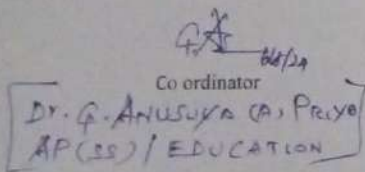 6/8/24
Co ordinator
Dr. G. ANUSUYA (A) PRIYA
AP(SS) / EDUCATION